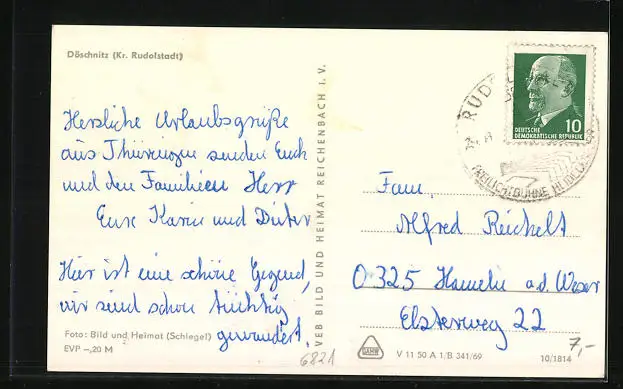 Döschnitz (Kr. Rudolstadt)
Herzliche Urlaubsgrüße
aus Thüringen senden Euch
und den Familien Herr
Eure Karin und Dieter
Hier ist eine schöne Gegend,
wir sind schon tüchtig
gewandert.
Foto: Bild und Heimat (Schlegel)
EVP –,20 M
6821
VEB BILD UND HEIMAT REICHENBACH I. V.
RUDO
FREILICHTBÜHNE HEIDECKSB
DEUTSCHE
DEMOKRATISCHE REPUBLIK
10
Fam.
Alfred Reichelt
0325 Hameln a.d. Weser
Elsterweg 22
7,-
DAMW
V 11 50 A 1/B 341/69
10/1814